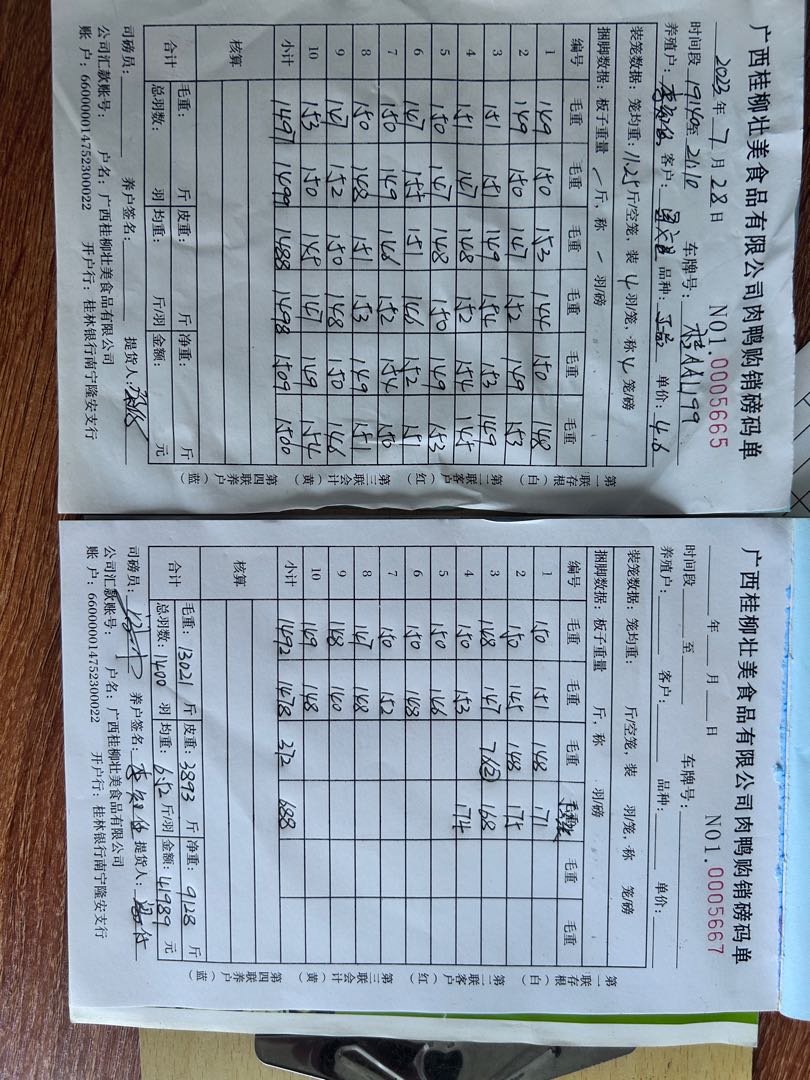 广西桂柳壮美食品有限公司肉鸭购销磅码单
NO1.0005665
2023年7月28日
时间段 19:40至21:10 车牌号: 桂AA1199
养殖户: 客户: 品种: 单价: 4.6
装笼数据: 笼均重: 11.25斤/空笼, 装 4 羽/笼, 称 4 笼/磅
捆脚数据: 板子重量 — 斤, 称 — 羽/磅
编号 毛重 毛重 毛重 毛重 毛重 毛重
1 149 150 153 144 150 148
2 149 150 147 152 149 153
3 151 151 149 154 153 149
4 151 147 148 152 154 145
5 150 147 148 150 149 153
6 147 155 151 146 152 151
7 150 149 146 152 154 150
8 150 148 151 153 149 151
9 147 152 150 148 150 146
10 153 150 145 147 149 154
小计 1497 1499 1488 1498 1509 1500
核算
合计 毛重: 斤 皮重: 斤 净重: 斤
总羽数: 羽 均重: 斤/羽 金额: 元
司磅员: 养户签名: 提货人:
公司汇款账号: 户名: 广西桂柳壮美食品有限公司
账 户: 660000014752300022 开户行: 桂林银行南宁隆安支行
第一联存根(白) 第二联客户(红) 第三联会计(黄) 第四联养户(蓝)
广西桂柳壮美食品有限公司肉鸭购销磅码单
NO1.0005667
年 月 日
时间段 至 车牌号:
养殖户: 客户: 品种: 单价:
装笼数据: 笼均重: 斤/空笼, 装 羽/笼, 称 笼/磅
捆脚数据: 板子重量 斤, 称 羽/磅
编号 毛重 毛重 毛重 毛重 毛重
1 150 151 148 171
2 150 145 148 175
3 148 147 76② 168
4 150 153 174
5 150 146
6 150 148
7 150 152
8 147 148
9 148 140
10 149 148
小计 1492 1478 372 688
核算
合计 毛重: 13021 斤 皮重: 3893 斤 净重: 9128 斤
总羽数: 1400 羽 均重: 6.52 斤/羽 金额: 41989 元
司磅员: 养户签名: 提货人:
公司汇款账号: 户名: 广西桂柳壮美食品有限公司
账 户: 660000014752300022 开户行: 桂林银行南宁隆安支行
第一联存根(白) 第二联客户(红) 第三联会计(黄) 第四联养户(蓝)